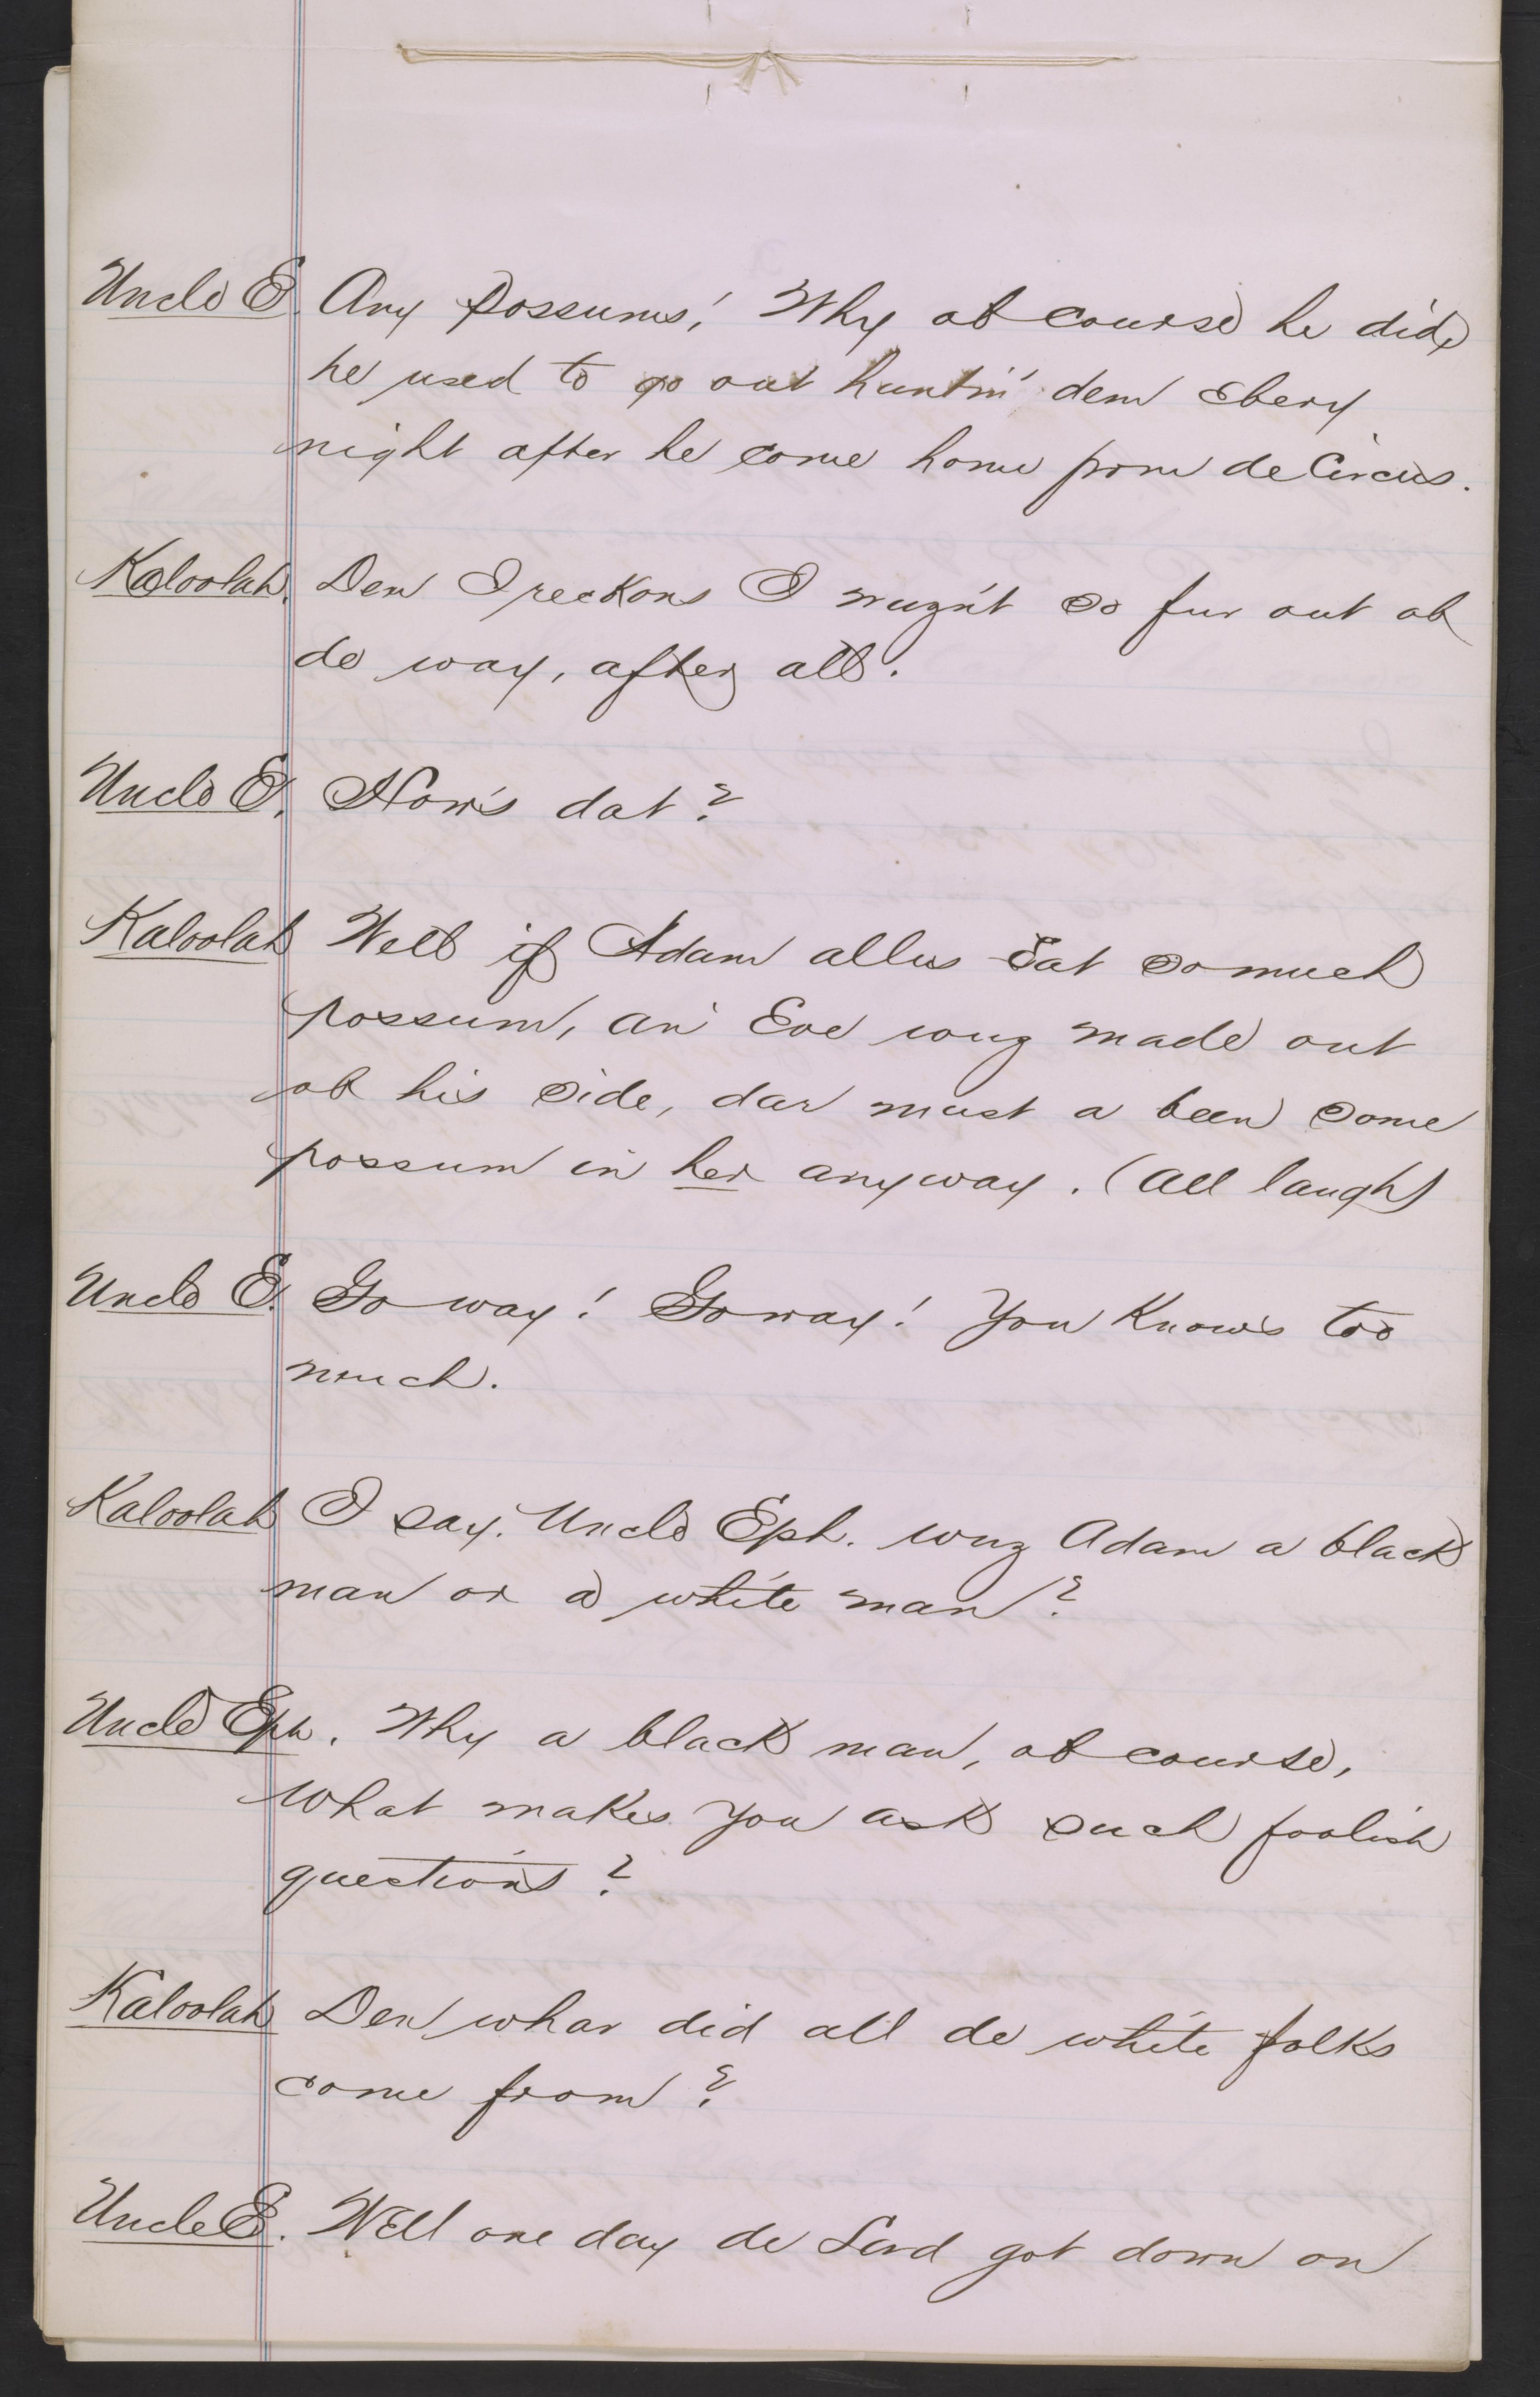 Uncle E. Any Possums! Why ob course he did,
he used to go out huntin' dem ebery
night after he come home from de Circus.
Kaloolah. Den I reckons I wuzn't so fur out ob
de way, after all.
Uncle E. How's dat?
Kaloolah Well if Adam allus eat so much
possum, an' Eve wuz made out
ob his side, dar must a been some
possum in her anyway. (All laugh)
Uncle E. Go way! Go way! You Knows too
much.
Kaloolah I say. Uncle Eph. wuz Adam a black
man or a white man?
Uncle Eph. Why a black man, ob course,
what makes you ask such foolish
questions?
Kaloolah Den whar did all de white folks
come from?
Uncle E. Well one day de Lord got down on